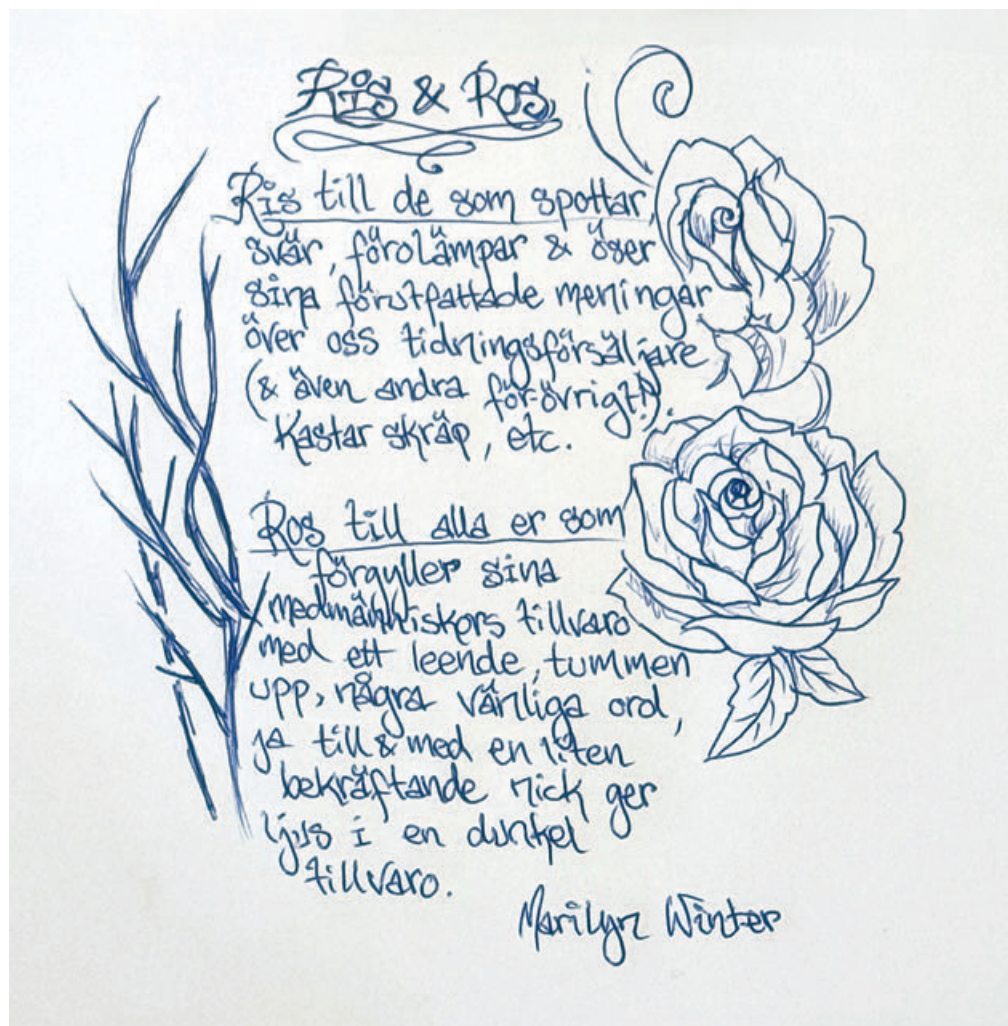 Ris & Ros
Ris till de som spottar,
svär, förolämpar & öser
sina förutfattade meningar
över oss tidningsförsäljare
(& även andra för övrigt!).
Kastar skräp, etc.
Ros till alla er som
förgyller sina
medmänniskors tillvaro
med ett leende, tummen
upp, några vänliga ord,
ja till & med en liten
bekräftande nick ger
ljus i en dunkel
tillvaro.
Marilyn Winter